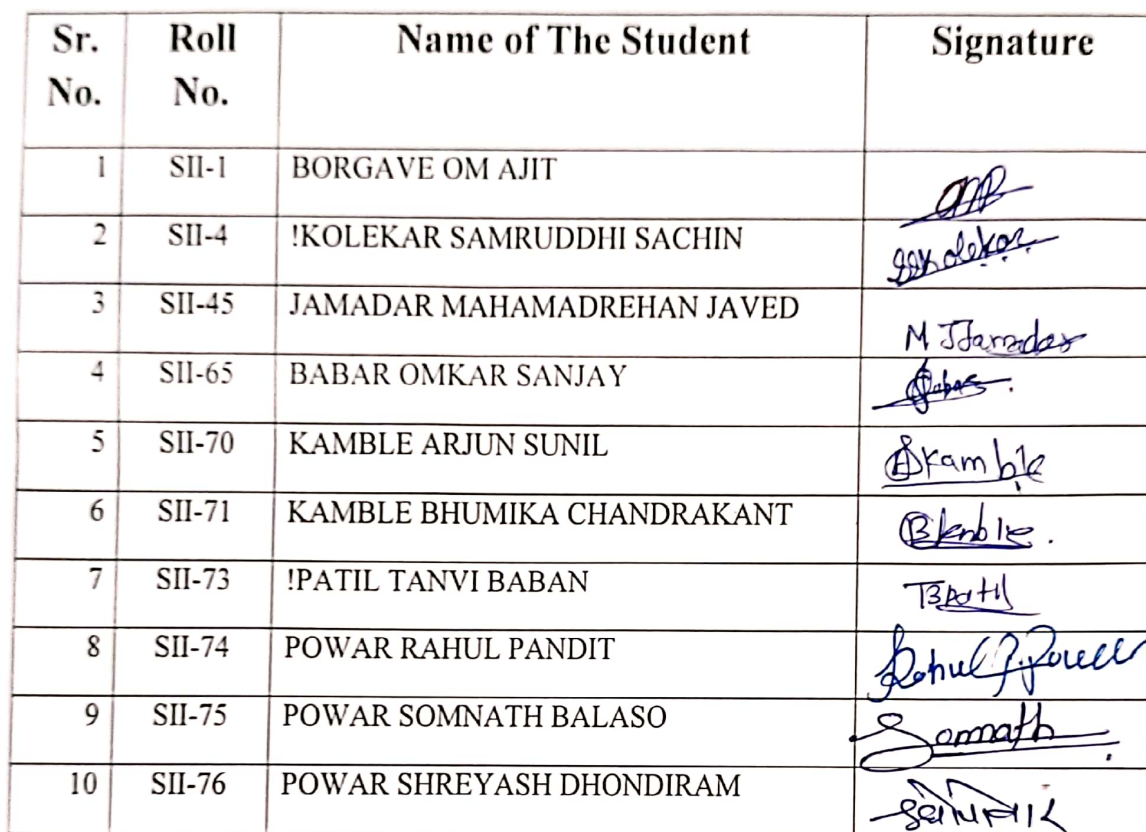 Sr. No. Roll No. Name of The Student Signature
1 SII-1 BORGAVE OM AJIT
2 SII-4 !KOLEKAR SAMRUDDHI SACHIN SSKolekar
3 SII-45 JAMADAR MAHAMADREHAN JAVED M JJamadar
4 SII-65 BABAR OMKAR SANJAY
5 SII-70 KAMBLE ARJUN SUNIL ASKamble
6 SII-71 KAMBLE BHUMIKA CHANDRAKANT
7 SII-73 !PATIL TANVI BABAN TBPatil
8 SII-74 POWAR RAHUL PANDIT Rahul P. Powar
9 SII-75 POWAR SOMNATH BALASO Somnath
10 SII-76 POWAR SHREYASH DHONDIRAM